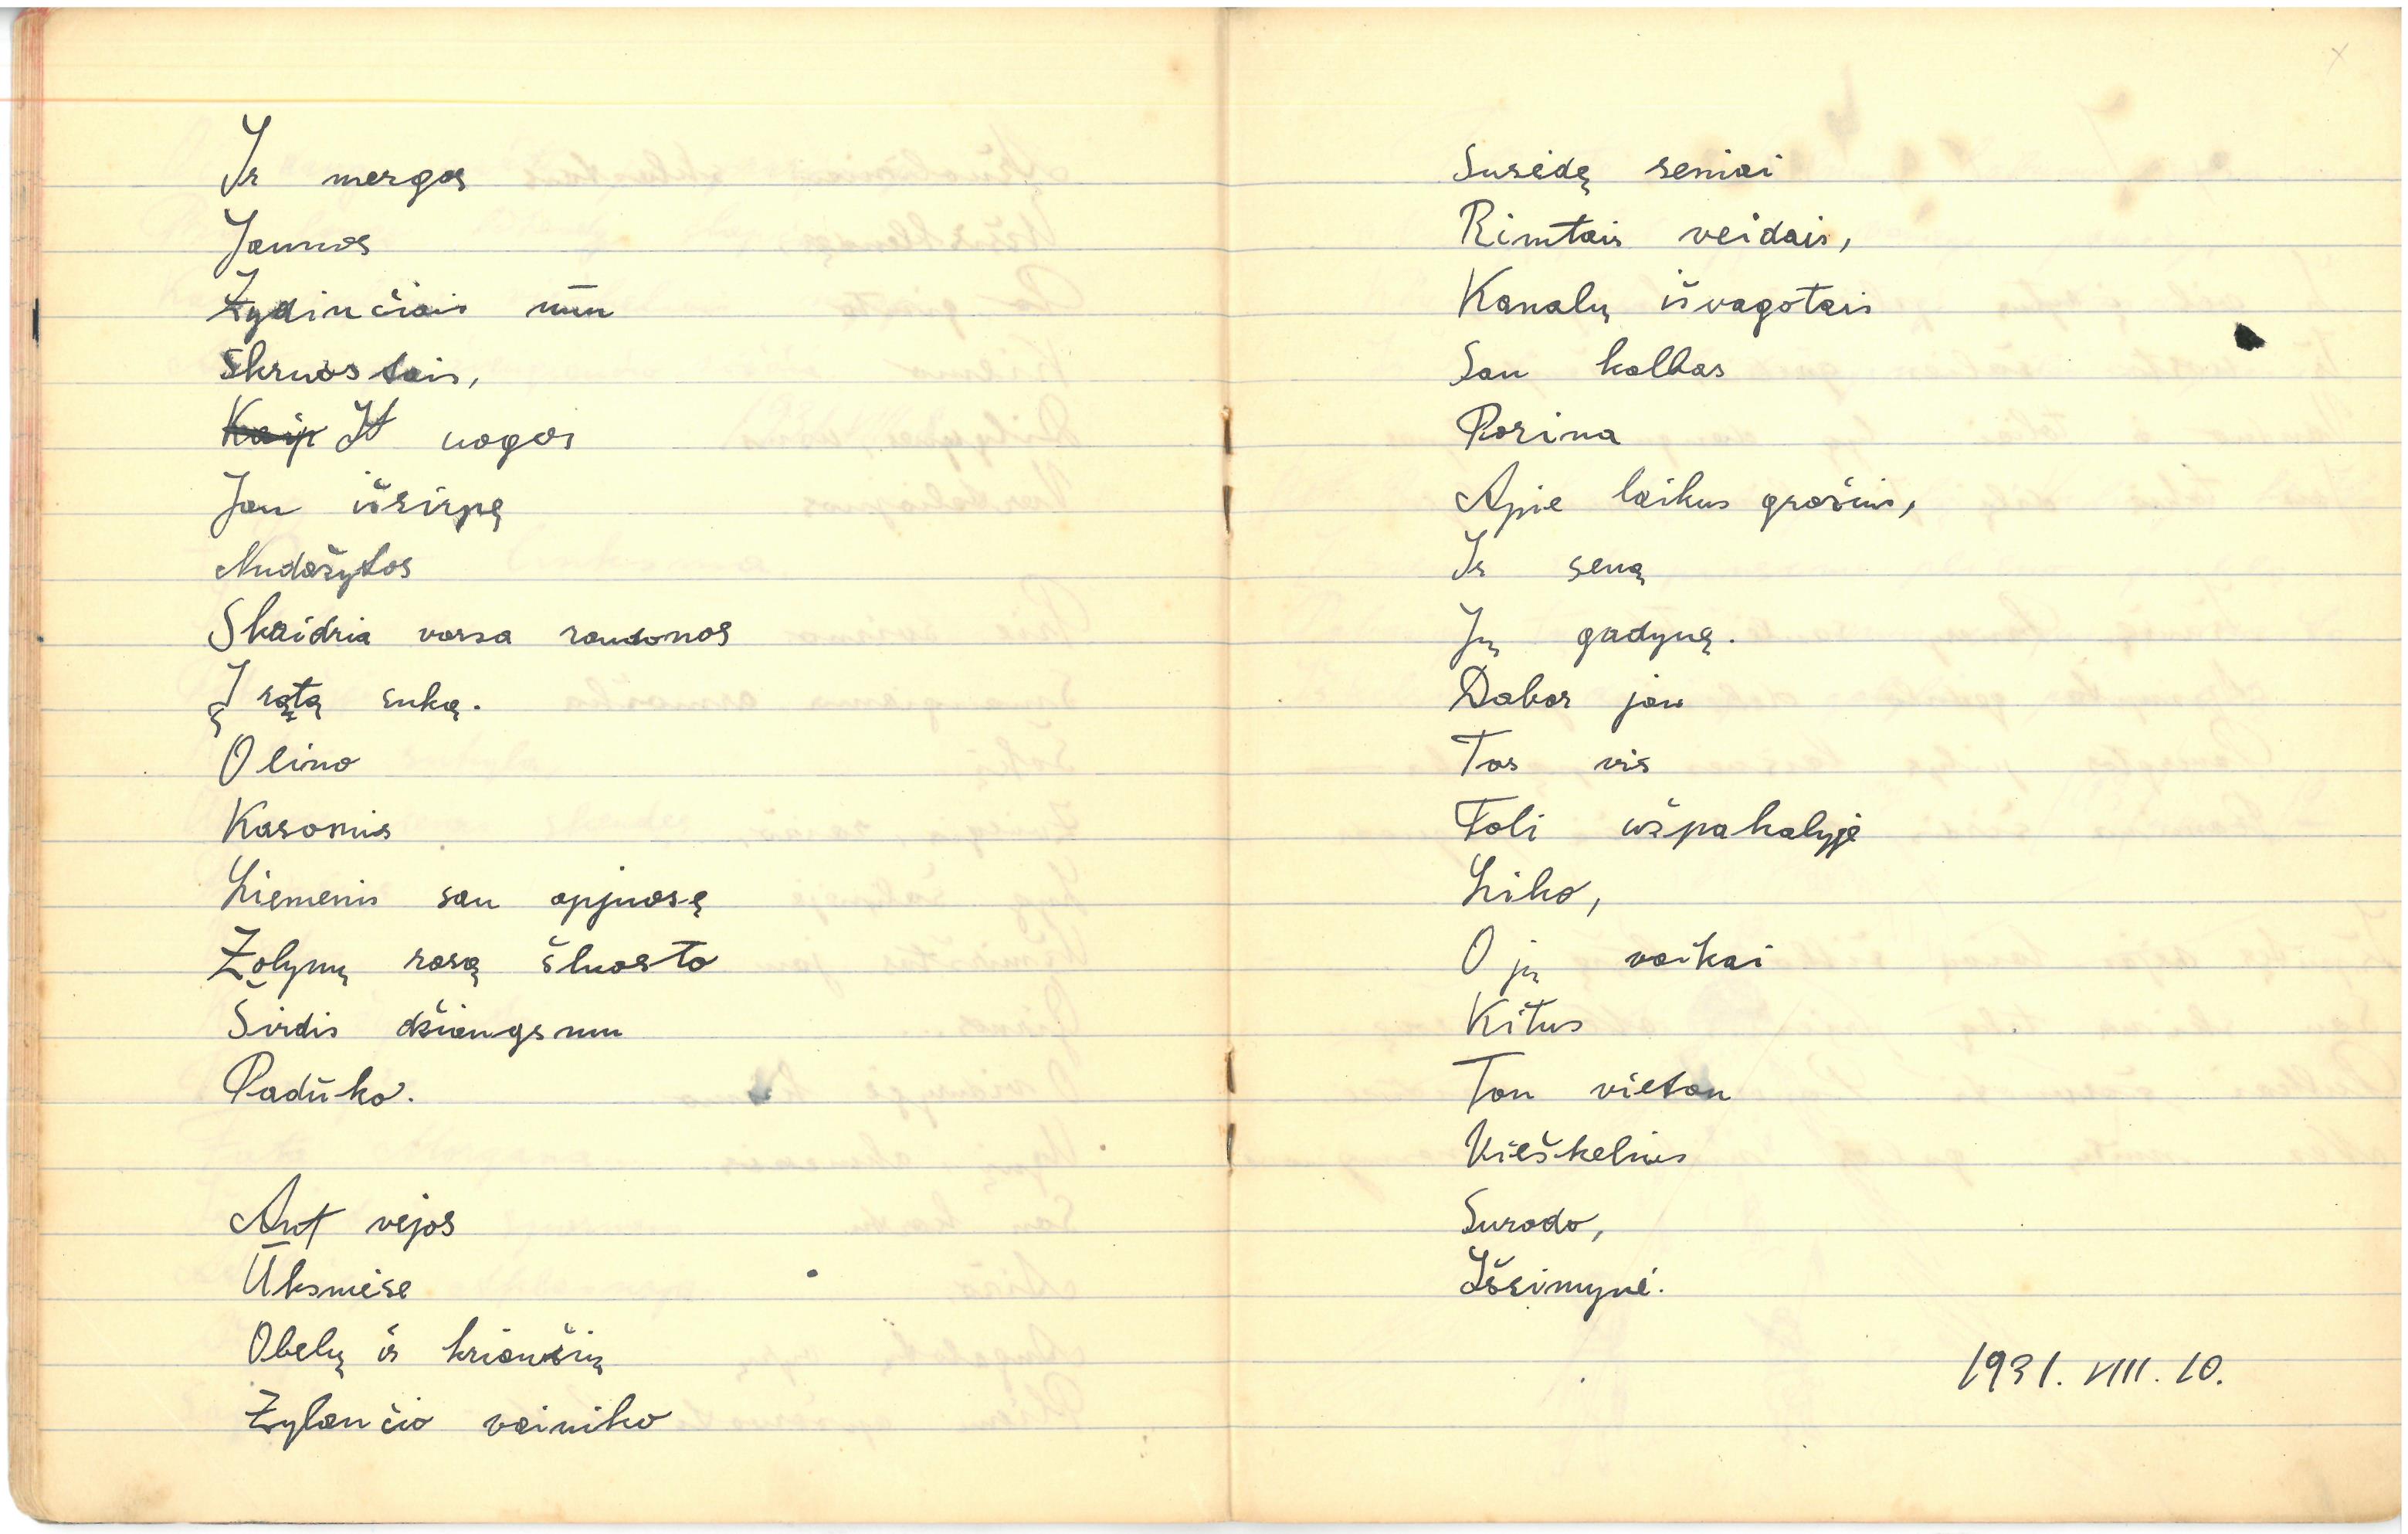 Ir mergos
Jaunos
Žydinčiais
Skruostais,
It uogos
Jau išsirpę
Nudažytos
Skaidria varsa raudonos
Į ratą suką.
O lino
Kasomis
Liemenis sau apjuosę
Žolynų rasą šluosto
Širdis džiaugsmu
Padūko.
Ant vejos
Ūksmėse
Obelų ir kriaušių
Žylančio vainiko
Susėdę seniai
Rimtais veidais,
Kanalų išvagotais
Sau kalbas
Porina
Apie laikus gražius,
Ir seną
Jų gadynę.
Dabar jau
Tas vis
Toli užpakalyje
Liko,
O jų vaikai
Kitus
Ton vieton
Vieškelius
Surado,
Išsimynė.
1931. VIII. 10.